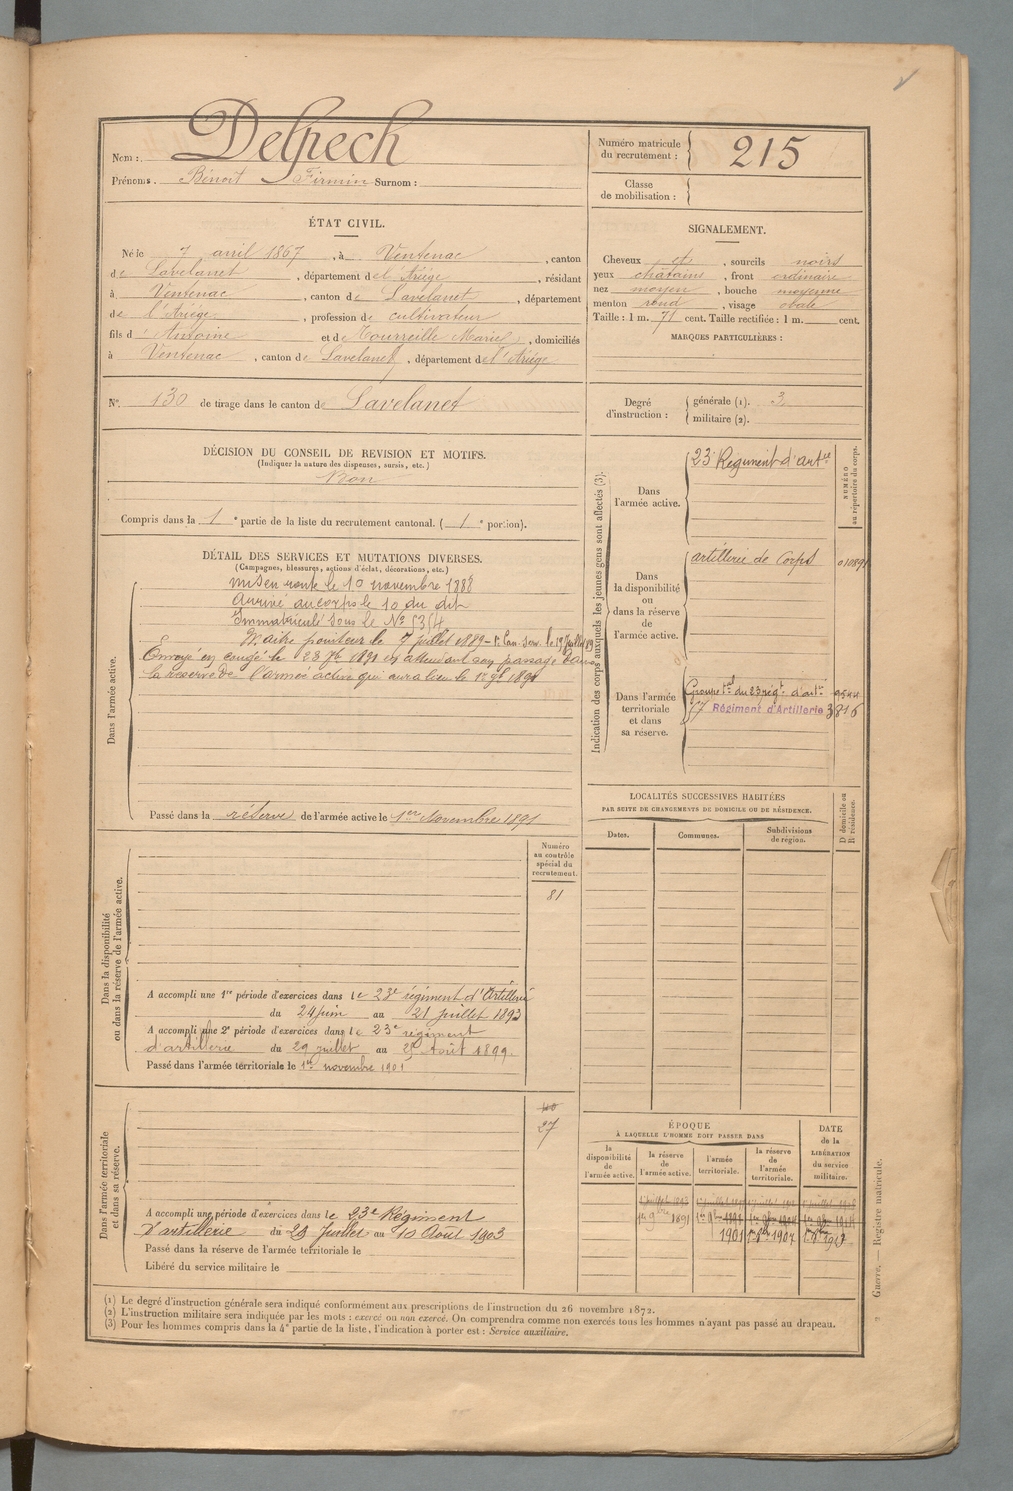 Nom : Delpech
Prénoms. Bénoit Firmin Surnom :
Numéro matricule du recrutement : 215
Classe de mobilisation :
ÉTAT CIVIL.
Né le 7 avril 1867, à Ventenac, canton
de Lavelanet, département de l'Ariége, résidant
à Ventenac, canton de Lavelanet, département
de l'Ariége, profession de cultivateur
fils d'Antoine et de Tourreille Marie, domiciliés
à Ventenac, canton de Lavelanet, département de l'Ariége
SIGNALEMENT.
Cheveux et, sourcils noirs
yeux châtains, front ordinaire
nez moyen, bouche moyenne
menton rond, visage ovale
Taille : 1 m. 71 cent. Taille rectifiée : 1 m. cent.
MARQUES PARTICULIÈRES :
N°. 130 de tirage dans le canton de Lavelanet
Degré d'instruction :
générale (1). 3
militaire (2).
DÉCISION DU CONSEIL DE REVISION ET MOTIFS.
(Indiquer la nature des dispenses, sursis, etc.)
Bon
Compris dans la 1e partie de la liste du recrutement cantonal. (1e portion).
DÉTAIL DES SERVICES ET MUTATIONS DIVERSES.
(Campagnes, blessures, actions d'éclat, décorations, etc.)
Dans l'armée active.
Mis en route le 10 novembre 1888
Arrivé au corps le 10 du dit
Immatriculé sous le N°
Maitre pointeur le 7 juillet 1889
Envoyé en congé le 23 7bre 1891 en attendant son passage dans
la réserve de l'armée active qui aura lieu le 1er 9bre 1891
Passé dans la réserve de l'armée active le 1er Novembre 1891
Indication des corps auxquels les jeunes gens sont affectés (3).
NUMÉRO au répertoire du corps.
Dans l'armée active.
23e Régiment d'artie
Dans la disponibilité ou dans la réserve de l'armée active.
artillerie de Corps
Dans l'armée territoriale et dans sa réserve.
Groupe tal du 23 régt d'artie 9544
17 Régiment d'Artillerie 3816
LOCALITÉS SUCCESSIVES HABITÉES
PAR SUITE DE CHANGEMENTS DE DOMICILE OU DE RÉSIDENCE.
Dates.
Communes.
Subdivisions de région.
D domicile ou R résidence.
Dans la disponibilité ou dans la réserve de l'armée active.
Numéro au contrôle spécial du recrutement.
81
A accompli une 1re période d'exercices dans le 23e régiment d'Artillerie
du 24 juin au 21 juillet 1893
A accompli une 2e période d'exercices dans le 23e régiment
d'artillerie du 29 juillet au 25 Août 1899.
Passé dans l'armée territoriale le 1er novembre 1901
Dans l'armée territoriale et dans sa réserve.
27
A accompli une période d'exercices dans le 23e Régiment
D'artillerie du 28 Juillet au 10 Août 1903
Passé dans la réserve de l'armée territoriale le
Libéré du service militaire le
ÉPOQUE
À LAQUELLE L'HOMME DOIT PASSER DANS
la disponibilité de l'armée active.
la réserve de l'armée active.
l'armée territoriale.
la réserve de l'armée territoriale.
DATE de la LIBÉRATION du service militaire.
1er 9bre 1891
1901
1907
(1) Le degré d'instruction générale sera indiqué conformément aux prescriptions de l'instruction du 26 novembre 1872.
(2) L'instruction militaire sera indiquée par les mots : exercé ou non exercé. On comprendra comme non exercés tous les hommes n'ayant pas passé au drapeau.
(3) Pour les hommes compris dans la 4e partie de la liste, l'indication à porter est : Service auxiliaire.
Guerre. — Registre matricule.